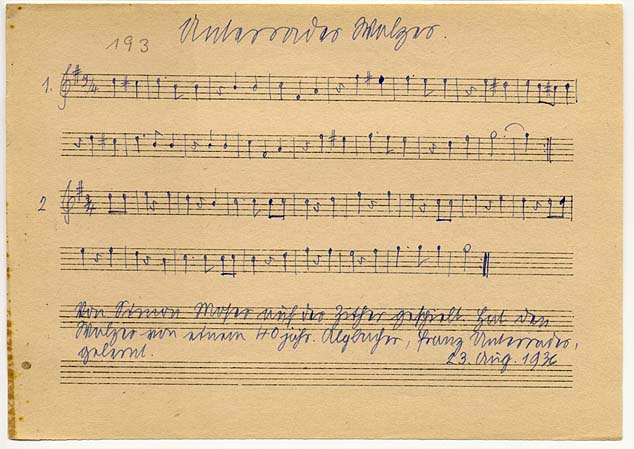 193
Unterrader Walzer.
1. 3/4
2 3/4
Von Simon Moser auf der Zither gespielt. Hat den
Walzer von einem 40 jähr. , Franz Unterrader,
gelernt.
23. Aug. 1936